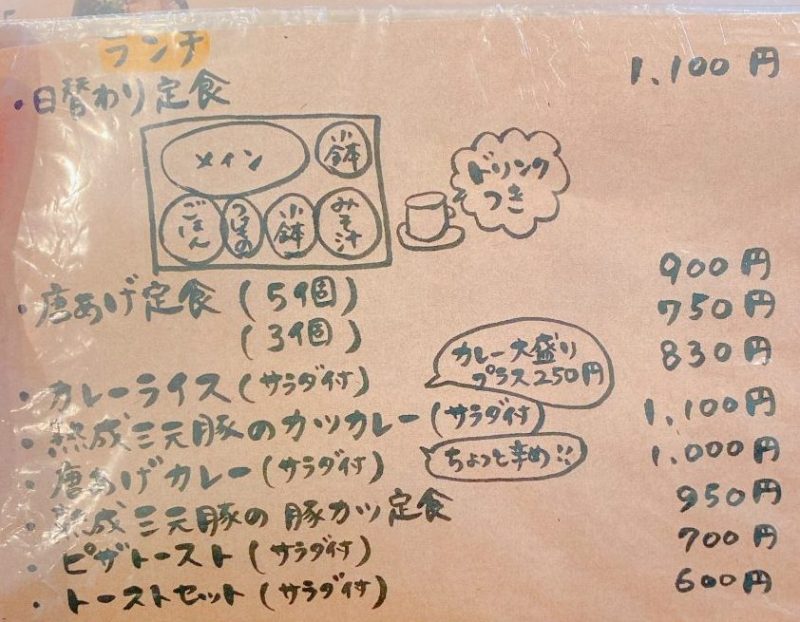 ランチ
・日替わり定食 1,100円
メイン
小鉢
ごはん
つけもの
小鉢
みそ汁
ドリンク
つき
・唐あげ定食(5個) 900円
(3個) 750円
・カレーライス(サラダ付) 830円
カレー大盛り
プラス250円
・熟成三元豚のカツカレー(サラダ付) 1,100円
・唐あげカレー(サラダ付) 1,000円
ちょっと辛め!!
・熟成三元豚の豚カツ定食 950円
・ピザトースト(サラダ付) 700円
・トーストセット(サラダ付) 600円